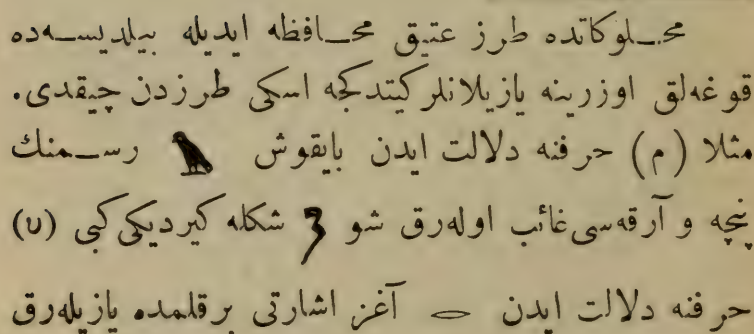 محلوكاتده طرز عتيق محافظه ايديله بيلديسه‌ده
قوغه‌لق اوزرينه يازيلانلر كيتدكجه اسكى طرزدن چيقدى.
مثلا (م) حرفنه دلالت ايدن بايقوش رسمنك
پنچه و آرقه‌سى غائب اوله‌رق شو شكله كيرديكى كبى (ں)
حرفنه دلالت ايدن آغز اشارتى برقلمده يازيله‌رق